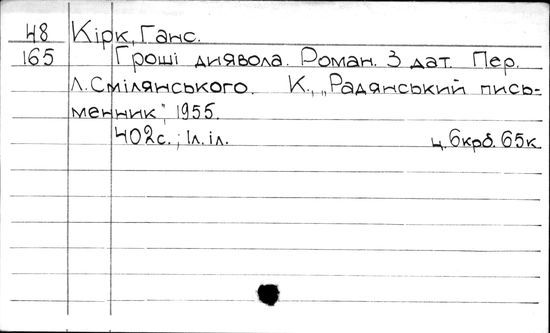 48 Кірк, Ганс.
165 Гроші диявола. Роман. З дат. Пер.
Л. Смілянського. К., „Радянський пись-
менник", 1955.
402с.; 1л. іл. ц. 6крб. 65к.